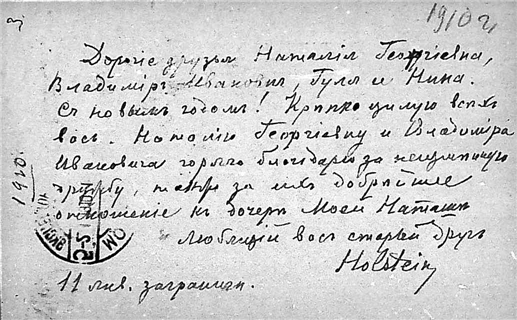 1910 г
Дорогіе друзья Наталія Георгіевна,
Владиміръ Ивановичъ, Гуля и Нина.
Съ новымъ годомъ! Крѣпко цѣлую всѣхъ
васъ. Наталію Георгіевну и Владиміра
Ивановича горячо благодарю за неизмѣнную
дружбу, также за ихъ добрѣйшее
отношеніе къ дочери моей Наташѣ
Любящій васъ старый другъ
Holstein
11 янв. заграницы.
1910.